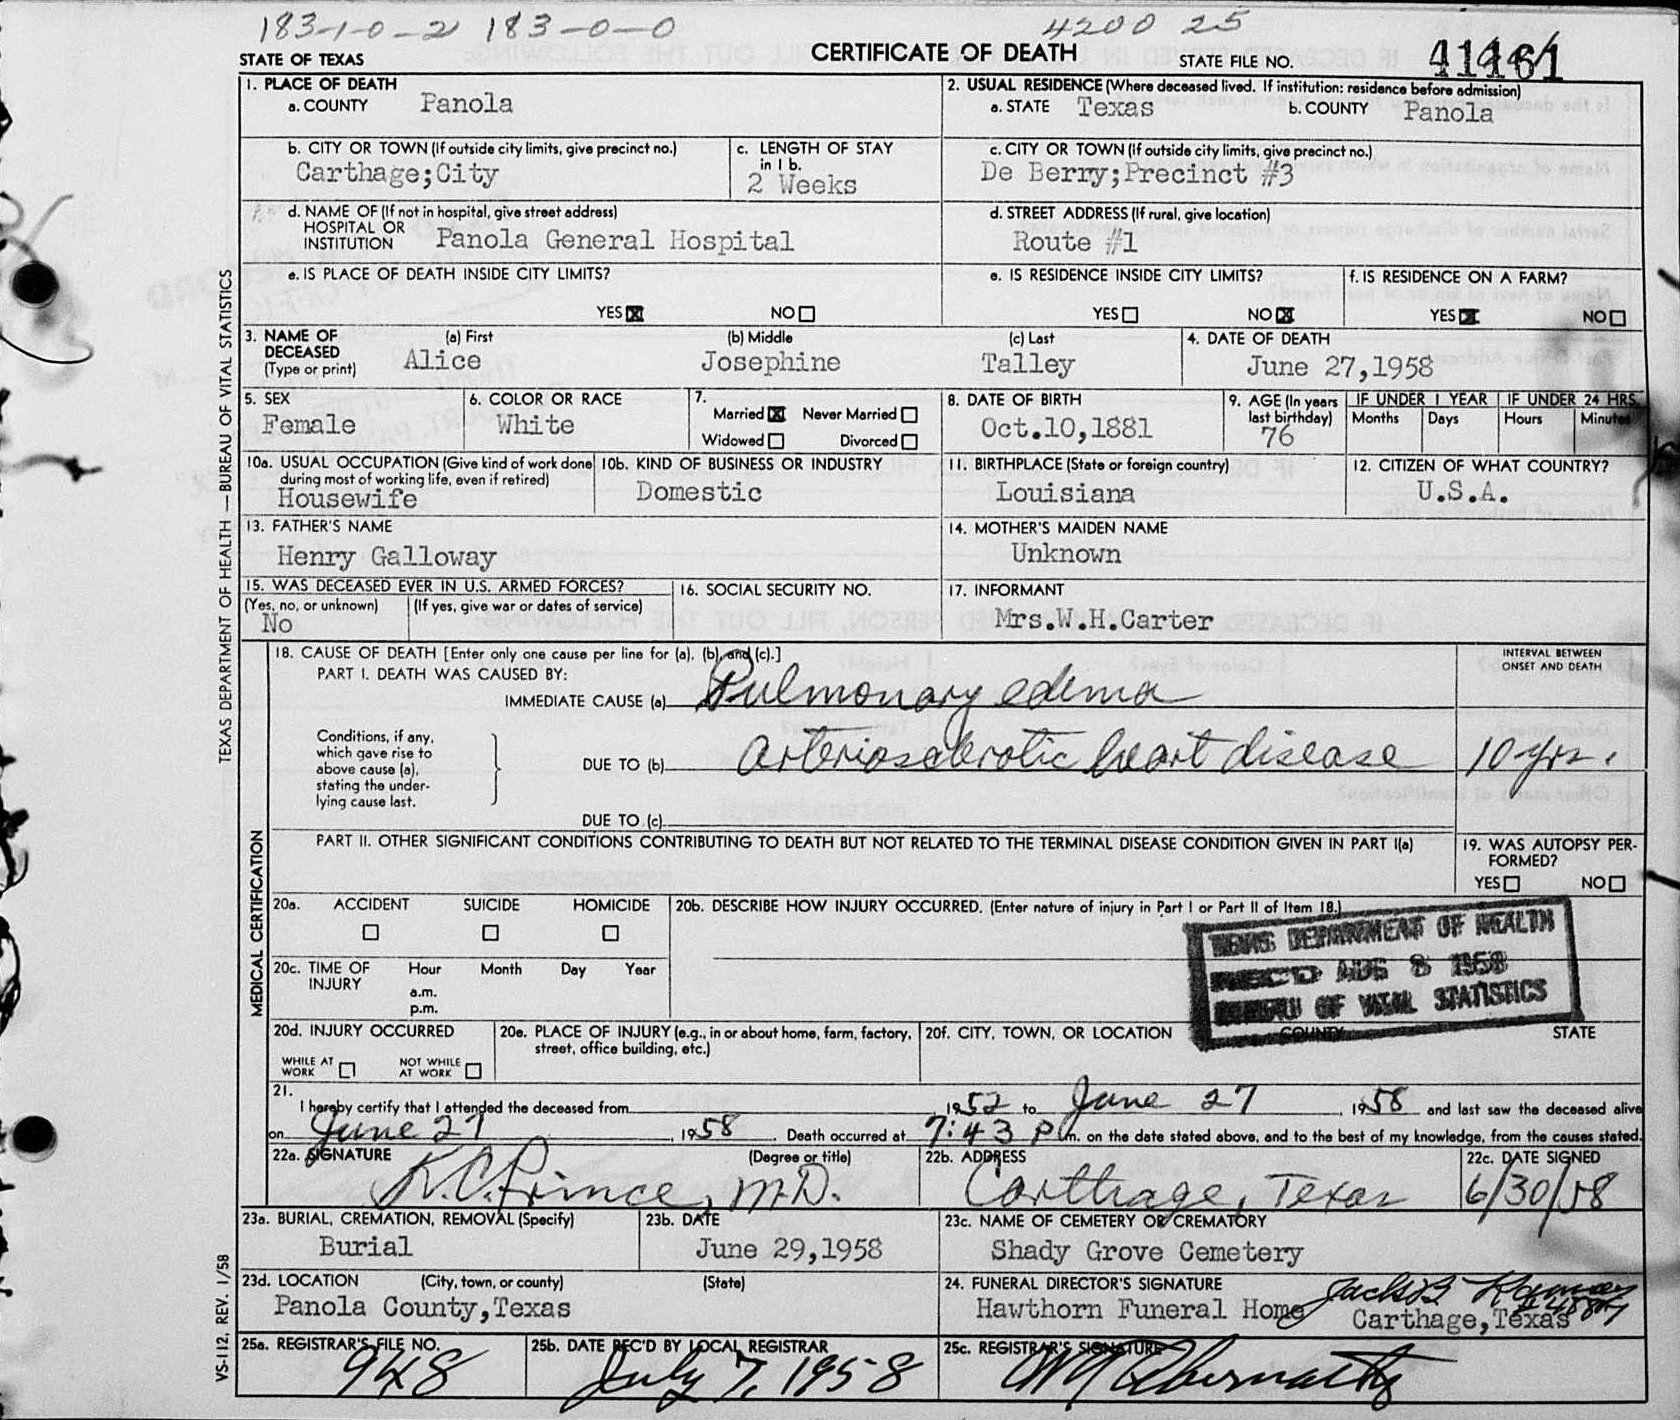 183-1-0-2 183-0-0 4200 25
STATE OF TEXAS CERTIFICATE OF DEATH STATE FILE NO. 41161
1. PLACE OF DEATH
a. COUNTY Panola
2. USUAL RESIDENCE (Where deceased lived. If institution: residence before admission)
a. STATE Texas b. COUNTY Panola
b. CITY OR TOWN (If outside city limits, give precinct no.)
Carthage;City
c. LENGTH OF STAY
in 1 b.
2 Weeks
c. CITY OR TOWN (If outside city limits, give precinct no.)
De Berry;Precinct #3
d. NAME OF (If not in hospital, give street address)
HOSPITAL OR
INSTITUTION Panola General Hospital
d. STREET ADDRESS (If rural, give location)
Route #1
e. IS PLACE OF DEATH INSIDE CITY LIMITS?
YES NO
e. IS RESIDENCE INSIDE CITY LIMITS?
YES NO
f. IS RESIDENCE ON A FARM?
YES NO
3. NAME OF
DECEASED
(Type or print)
(a) First (b) Middle (c) Last
Alice Josephine Talley
4. DATE OF DEATH
June 27,1958
5. SEX
Female
6. COLOR OR RACE
White
7.
Married Never Married
Widowed Divorced
8. DATE OF BIRTH
Oct.10,1881
9. AGE (In years
last birthday)
76
IF UNDER 1 YEAR IF UNDER 24 HRS.
Months Days Hours Minutes
10a. USUAL OCCUPATION (Give kind of work done
during most of working life, even if retired)
Housewife
10b. KIND OF BUSINESS OR INDUSTRY
Domestic
11. BIRTHPLACE (State or foreign country)
Louisiana
12. CITIZEN OF WHAT COUNTRY?
U.S.A.
13. FATHER'S NAME
Henry Galloway
14. MOTHER'S MAIDEN NAME
Unknown
15. WAS DECEASED EVER IN U.S. ARMED FORCES?
(Yes, no, or unknown) (If yes, give war or dates of service)
No
16. SOCIAL SECURITY NO.
17. INFORMANT
Mrs.W.H.Carter
18. CAUSE OF DEATH [Enter only one cause per line for (a), (b), and (c).]
PART I. DEATH WAS CAUSED BY:
IMMEDIATE CAUSE (a) Pulmonary edema
INTERVAL BETWEEN
ONSET AND DEATH
Conditions, if any,
which gave rise to
above cause (a),
stating the under-
lying cause last.
DUE TO (b) arteriosclerotic heart disease 10 yrs.
DUE TO (c)
PART II. OTHER SIGNIFICANT CONDITIONS CONTRIBUTING TO DEATH BUT NOT RELATED TO THE TERMINAL DISEASE CONDITION GIVEN IN PART I(a)
19. WAS AUTOPSY PER-
FORMED?
YES NO
20a. ACCIDENT SUICIDE HOMICIDE
20b. DESCRIBE HOW INJURY OCCURRED. (Enter nature of injury in Part I or Part II of Item 18.)
TEXAS DEPARTMENT OF HEALTH
AUG 8 1958
BUREAU OF VITAL STATISTICS
20c. TIME OF
INJURY
Hour Month Day Year
a.m.
p.m.
20d. INJURY OCCURRED
WHILE AT
WORK
NOT WHILE
AT WORK
20e. PLACE OF INJURY (e.g., in or about home, farm, factory,
street, office building, etc.)
20f. CITY, TOWN, OR LOCATION COUNTY STATE
21.
I hereby certify that I attended the deceased from 1952 to June 27, 1958 and last saw the deceased alive
on June 27, 1958. Death occurred at 7:43 P m. on the date stated above, and to the best of my knowledge, from the causes stated.
22a. SIGNATURE (Degree or title)
K.C. Prince, M.D.
22b. ADDRESS
Carthage, Texas
22c. DATE SIGNED
6/30/58
23a. BURIAL, CREMATION, REMOVAL (Specify)
Burial
23b. DATE
June 29,1958
23c. NAME OF CEMETERY OR CREMATORY
Shady Grove Cemetery
23d. LOCATION (City, town, or county) (State)
Panola County,Texas
24. FUNERAL DIRECTOR'S SIGNATURE
Hawthorn Funeral Home Carthage,Texas
25a. REGISTRAR'S FILE NO.
948
25b. DATE REC'D BY LOCAL REGISTRAR
July 7, 1958
25c. REGISTRAR'S SIGNATURE
Abernathy
TEXAS DEPARTMENT OF HEALTH — BUREAU OF VITAL STATISTICS
MEDICAL CERTIFICATION
VS-112, REV. 1/58